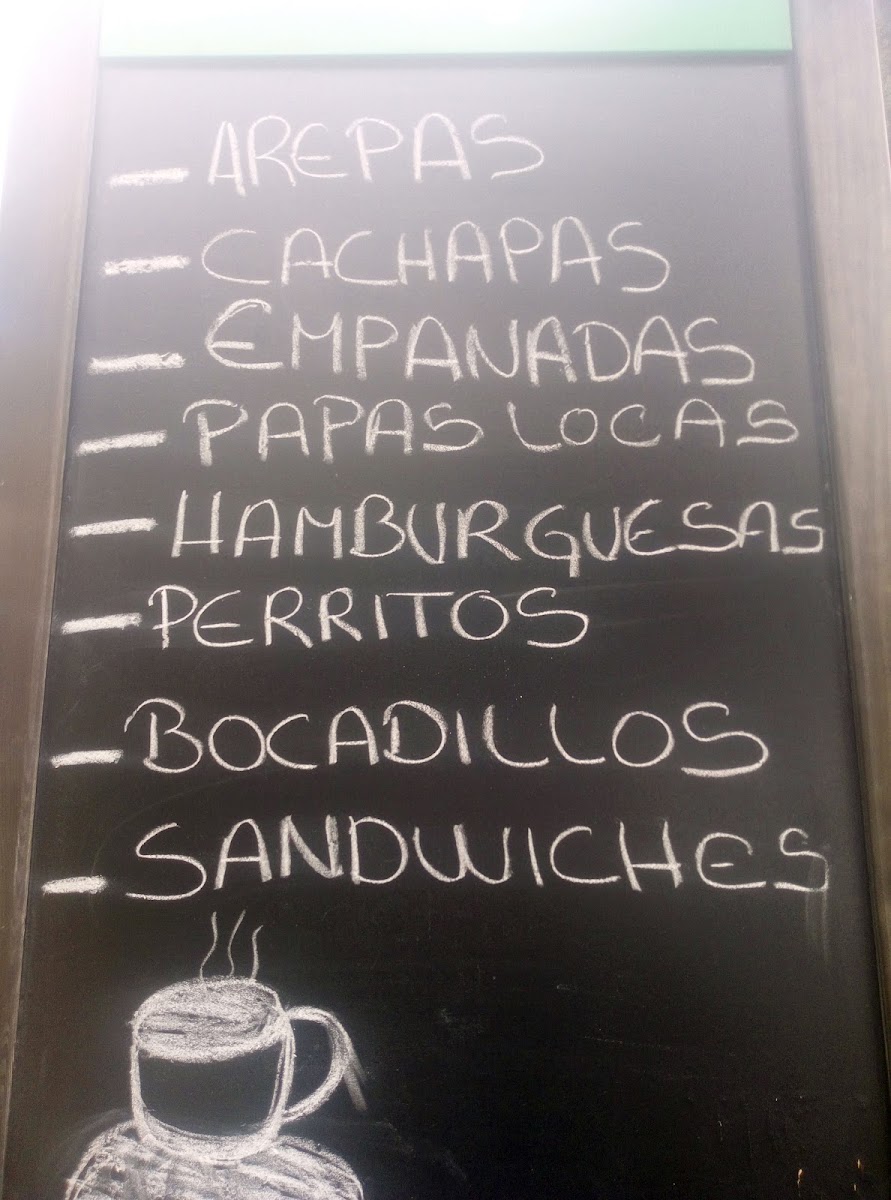 - AREPAS
- CACHAPAS
- EMPANADAS
- PAPAS LOCAS
- HAMBURGUESAS
- PERRITOS
- BOCADILLOS
- SANDWICHES